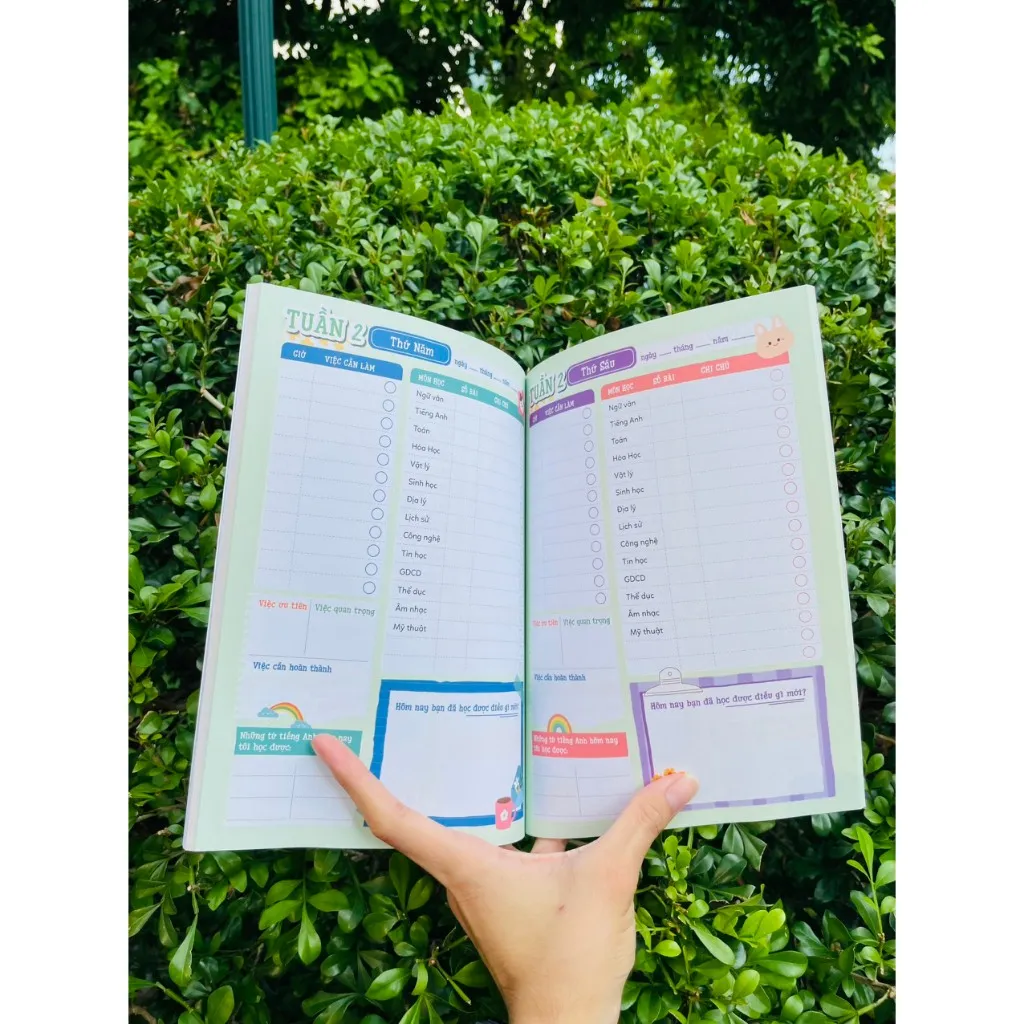 TUẦN 2
Thứ Năm
ngày ___ tháng ___ năm
GIỜ VIỆC CẦN LÀM
MÔN HỌC SỐ BÀI GHI CHÚ
Ngữ văn
Tiếng Anh
Toán
Hóa Học
Vật lý
Sinh học
Địa lý
Lịch sử
Công nghệ
Tin học
GDCD
Thể dục
Âm nhạc
Mỹ thuật
Việc ưu tiên
Việc quan trọng
Việc cần hoàn thành
Những từ tiếng Anh nay
tôi học được:
Hôm nay bạn đã học được điều gì mới?
TUẦN 2
Thứ Sáu
ngày ___ tháng ___ năm ___
VIỆC CẦN LÀM
MÔN HỌC SỐ BÀI GHI CHÚ
Ngữ văn
Tiếng Anh
Toán
Hóa Học
Vật lý
Sinh học
Địa lý
Lịch sử
Công nghệ
Tin học
GDCD
Thể dục
Âm nhạc
Mỹ thuật
ưu tiên
Việc quan trọng
Việc cần hoàn thành
Những từ tiếng Anh hôm nay
tôi học được:
Hôm nay bạn đã học được điều gì mới?